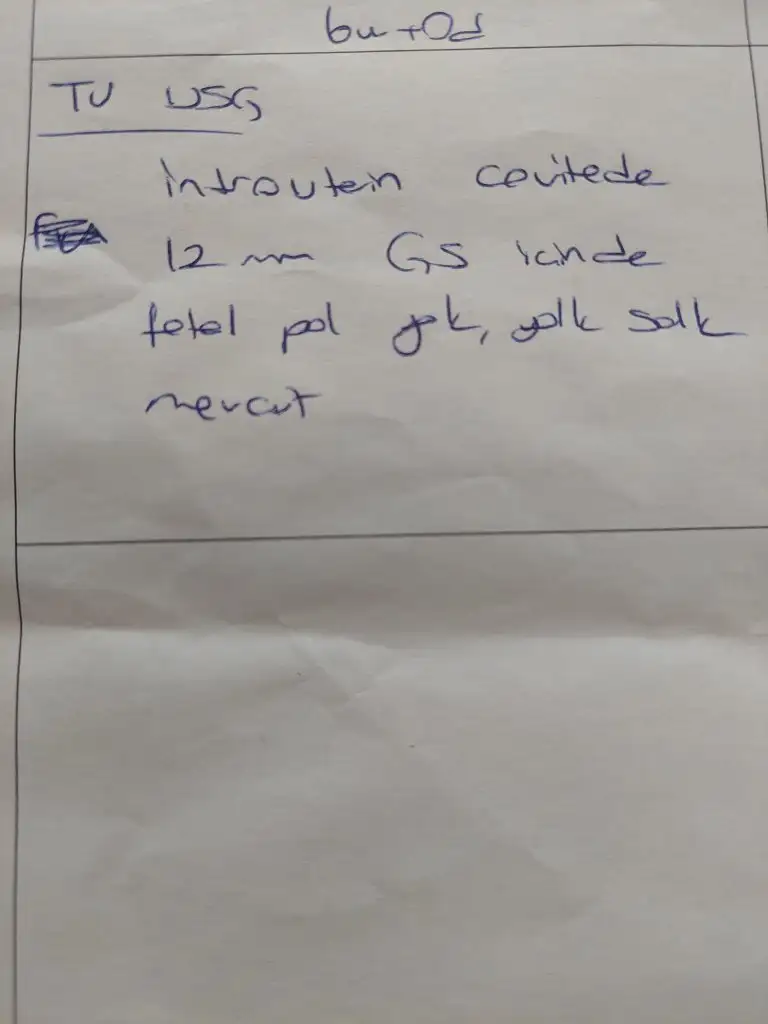 6w+0d
TV USG
intrauterin cavitede
12 mm GS icinde
fetal pol yok, yolk salk
mevcut